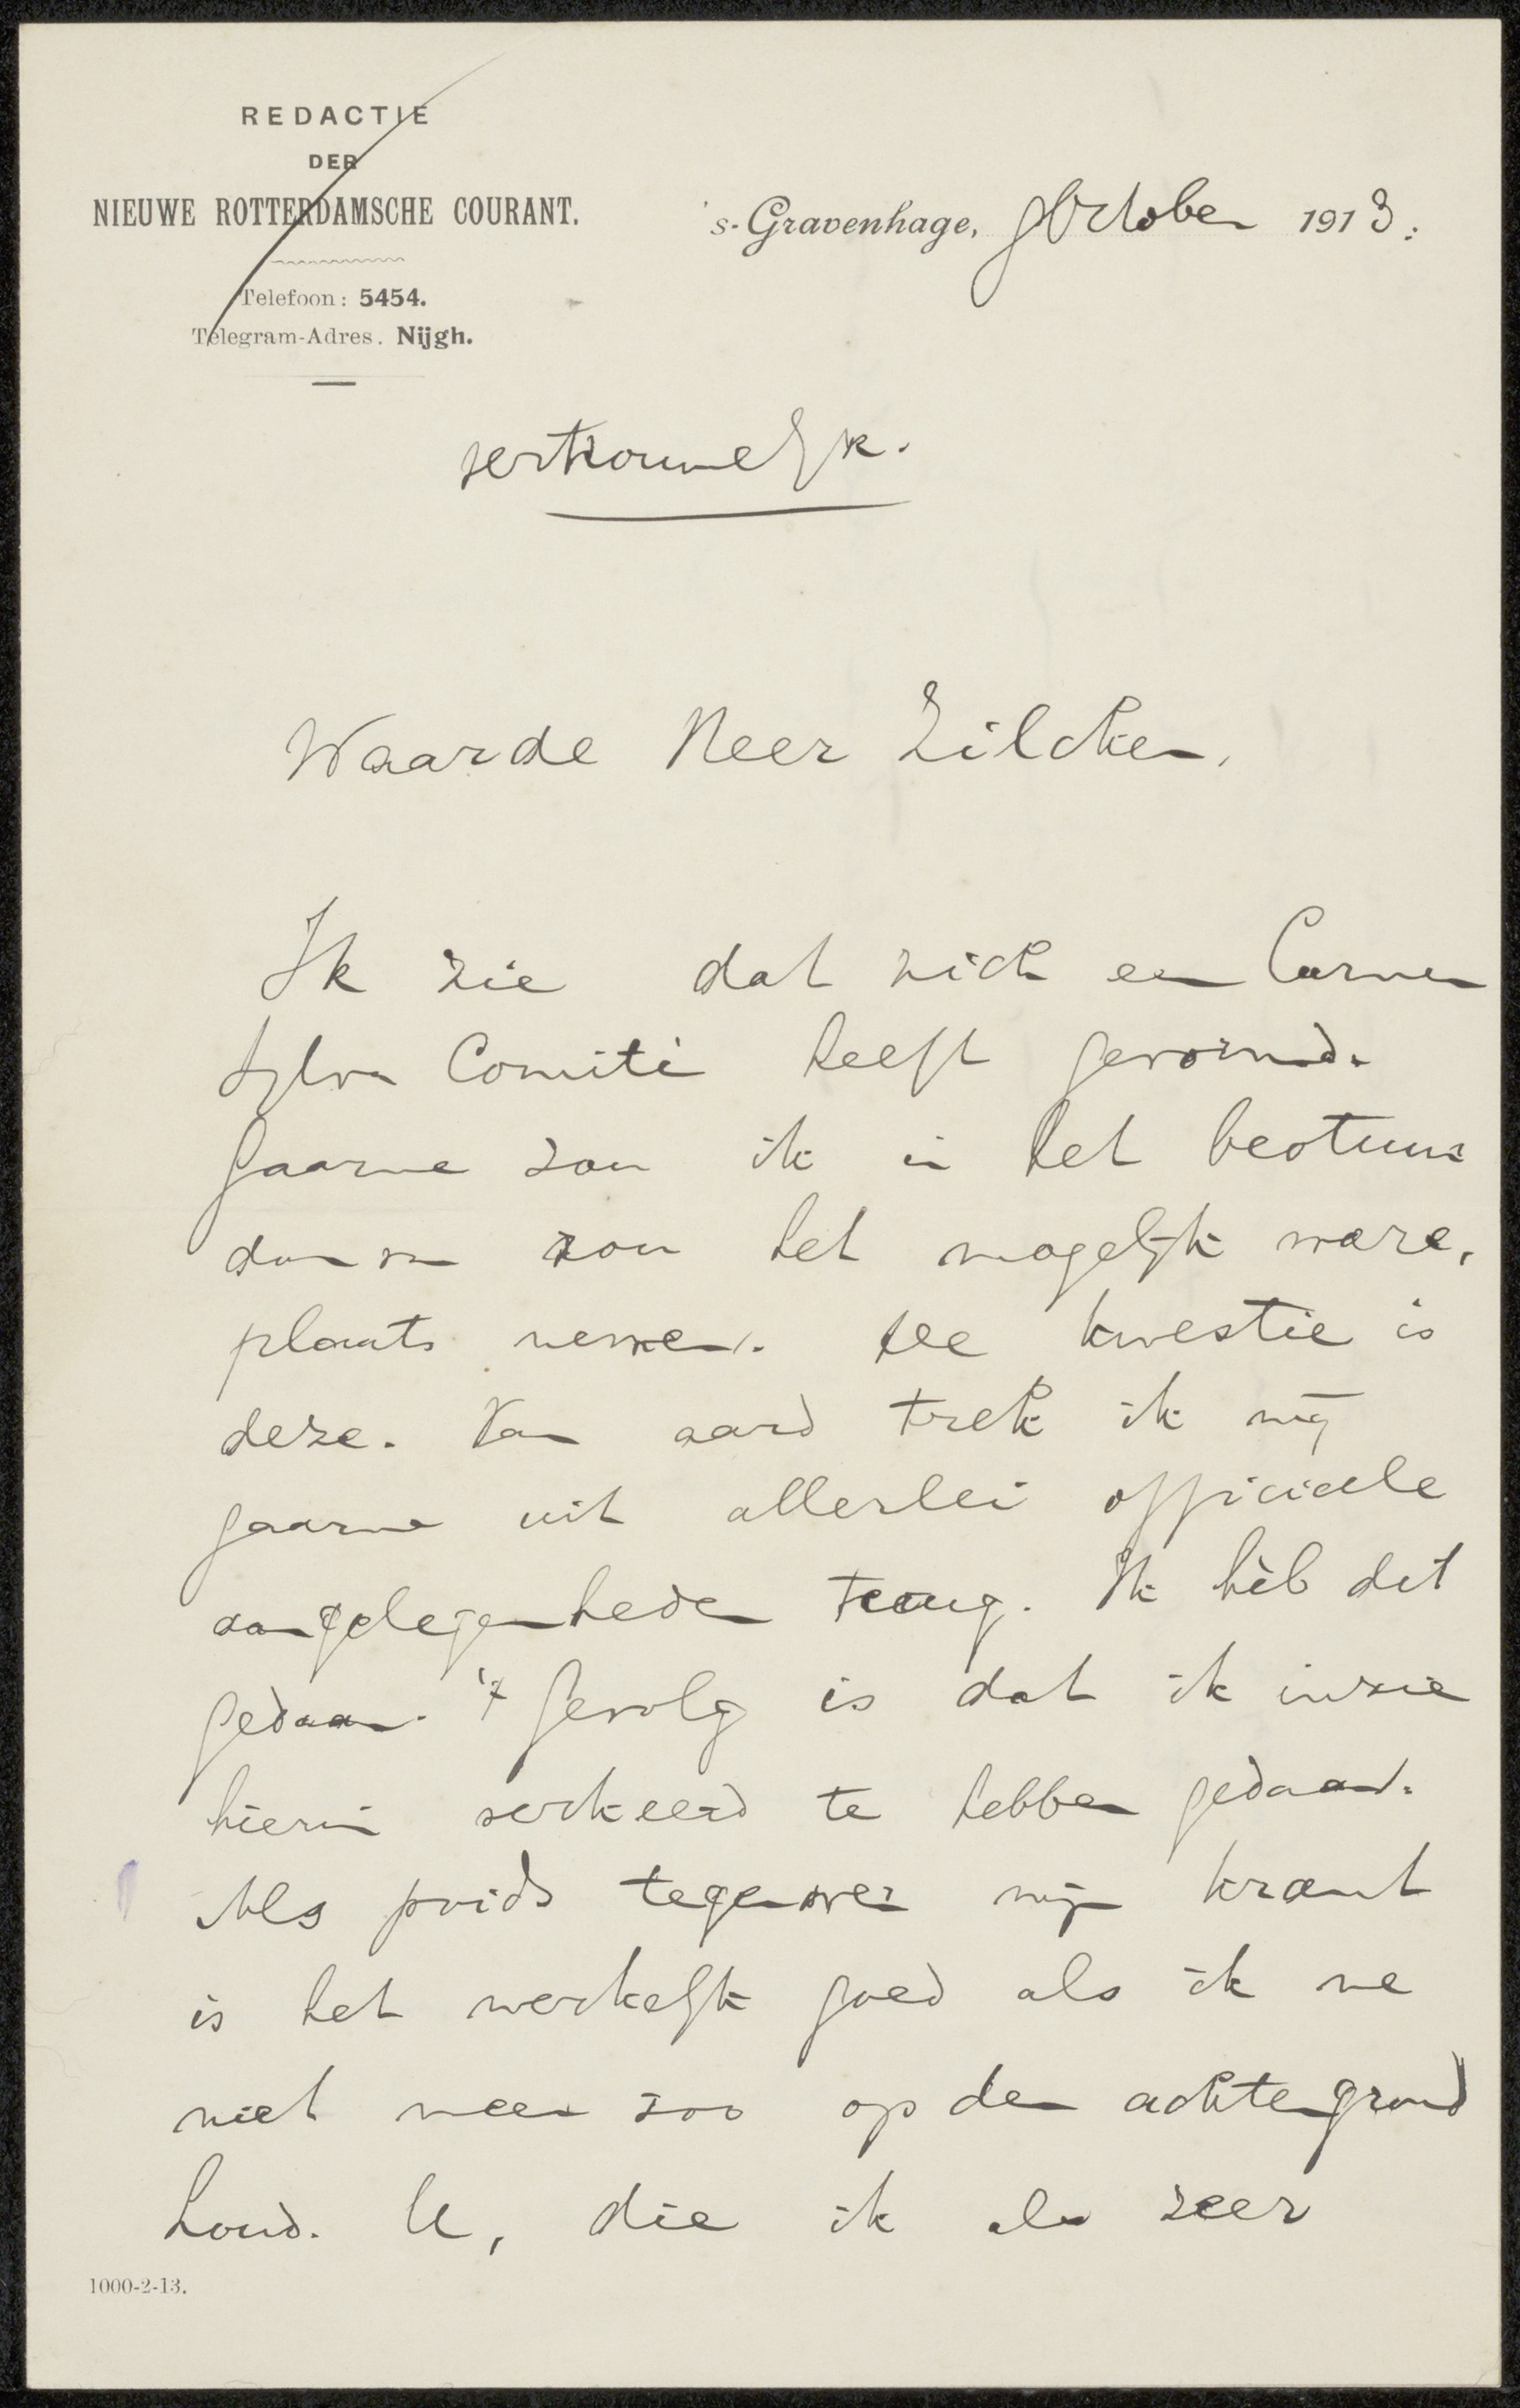 REDACTIE
DER
NIEUWE ROTTERDAMSCHE COURANT.
Telefoon: 5454.
Telegram-Adres. Nijgh.
's-Gravenhage, 9 October 1913.
vertrouwelijk.
Waarde Heer Zilcken,
Ik zie dat zich een Carmen
Sylva Comité heeft gevormd.
Gaarne zou ik in het bestuur
daarvan zou het mogelijk ware,
plaats nemen. De kwestie is
deze. Van aard trek ik mij
gaarne uit allerlei officieele
aangelegenheden terug. Ik heb dit
gedaan. 't Gevolg is dat ik inzie
hierin verkeerd te hebben gedaan.
Als poids tegenover mijn krant
is het werkelijk goed als ik me
niet meer zoo op den achtergrond
houd. U, die ik als zeer
1000-2-13.